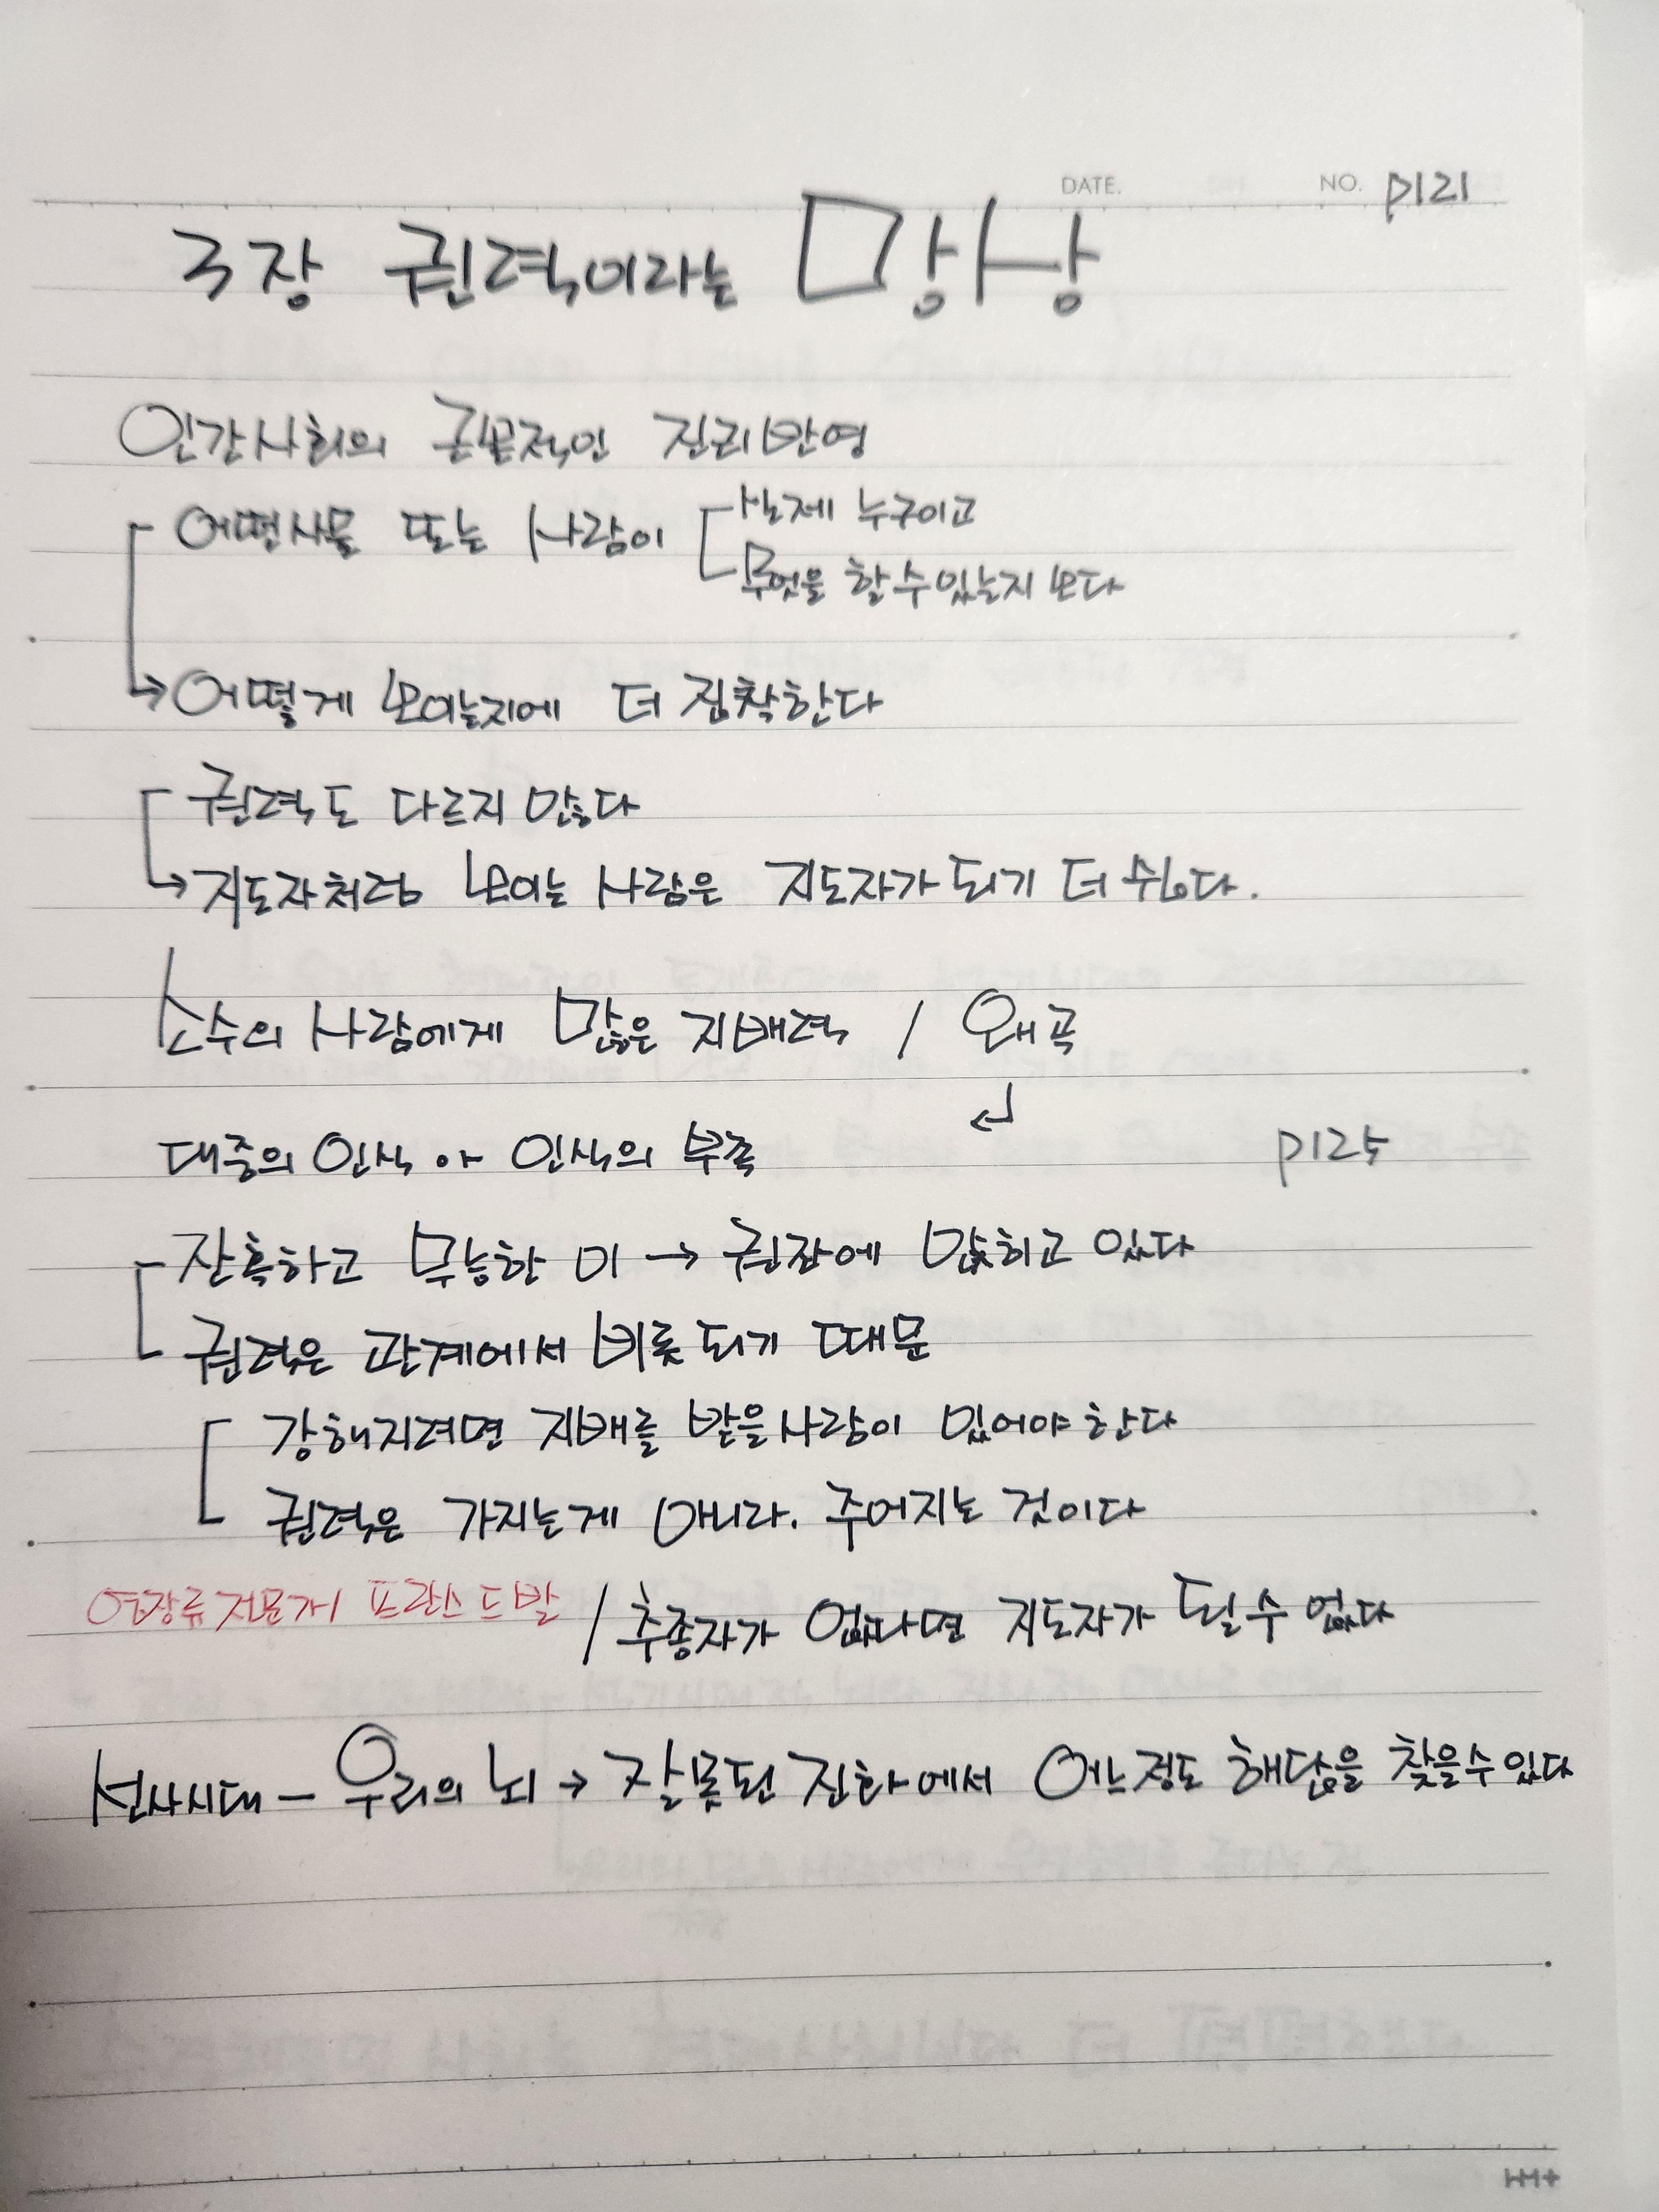 DATE. NO. P121
3장 권력이라는 망상
인간사회의 근본적인 진리반영
어떤사물 또는 사람이
실제 누구이고
무엇을 할수있는지 보다
→ 어떻게 보이는지에 더 집착한다
권력도 다르지 않다
→ 지도자처럼 보이는 사람은 지도자가 되기 더 쉽다.
소수의 사람에게 많은 지배력 / 왜곡
↵
대중의 인식 아 인식의 부족 P125
잔혹하고 무능한 이 → 권좌에 앉히고 있다
권력은 관계에서 비롯되기 때문
강해지려면 지배를 받을사람이 있어야한다
권력은 가지는게 아니라. 주어지는 것이다
영장류전문가 프란스 드발 / 추종자가 없다면 지도자가 될수 없다
선사시대 - 우리의 뇌 → 잘못된 진화에서 어느정도 해답을 찾을수있다